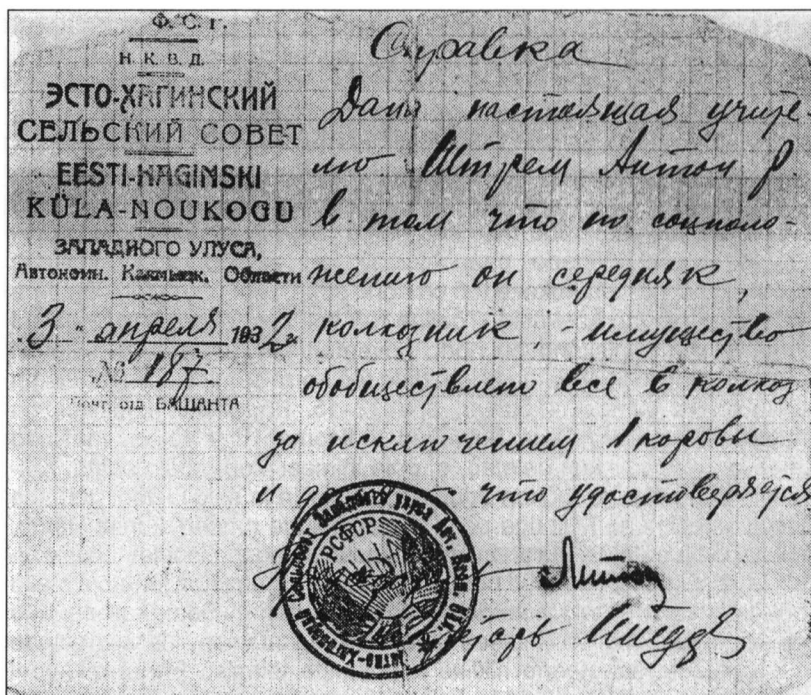 Р. С. Ф. С. Р.
Н. К. В. Д.
ЭСТО-ХАГИНСКИЙ
СЕЛЬСКИЙ СОВЕТ
EESTI-HAGINSKI
KÜLA-NOUKOGU
ЗАПАДНОГО УЛУСА,
Автономн. Калмыцк. Области
3 " апреля 1932 г.
№ 187
Почт. отд. БАШАНТА
Справка
Дана настоящая учите-
лю Штрем Антон Я
в том что по социоло-
жению он середняк,
колхозник, - имущество
обобществлено все в колхоз
за исключением 1 коровы
и что удостоверяется
РСФСР
секретарь